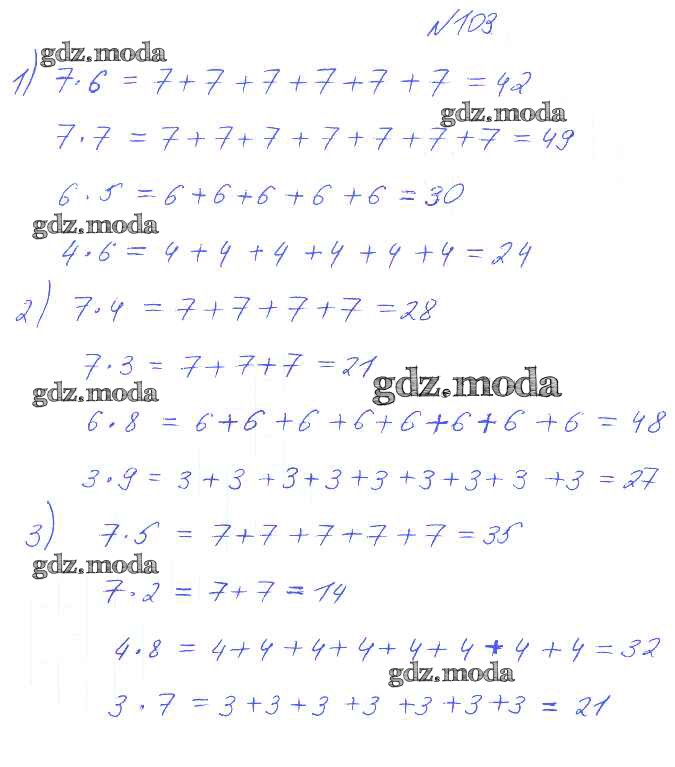 №103
gdz.moda
1) 7·6 = 7+7+7+7+7+7 = 42
gdz.moda
7·7 = 7+7+7+7+7+7+7 = 49
6·5 = 6+6+6+6+6 = 30
gdz.moda
4·6 = 4+4+4+4+4+4 = 24
2) 7·4 = 7+7+7+7 = 28
7·3 = 7+7+7 = 21
gdz.moda
gdz.moda
6·8 = 6+6+6+6+6+6+6+6 = 48
3·9 = 3+3+3+3+3+3+3+3+3 = 27
3) 7·5 = 7+7+7+7+7 = 35
gdz.moda
7·2 = 7+7 = 14
4·8 = 4+4+4+4+4+4+4+4 = 32
gdz.moda
3·7 = 3+3+3+3+3+3+3 = 21